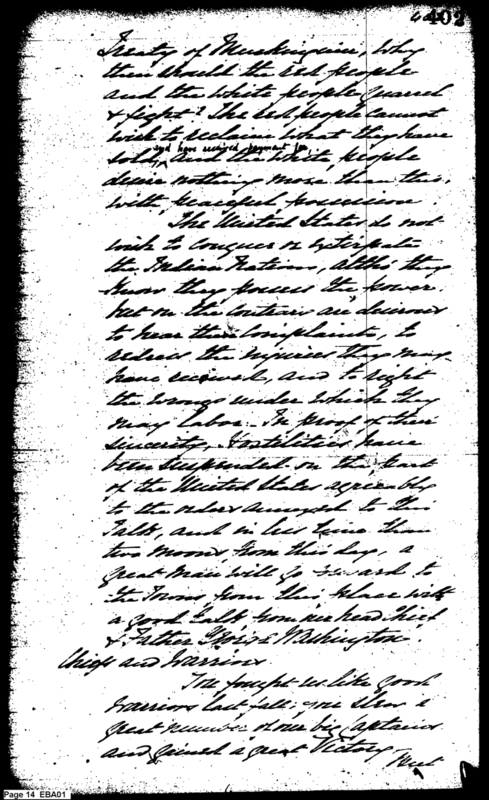 402
Treaty of Muskingum, Why
then should the red people
and the white people quarrel
& fight? The red people cannot
wish to reclaim what they have
and have received payment for
sold, and the white people
desire nothing more than this,
with peaceful possession.
The United States do not
wish to conquer or extirpate
the Indian Nations, altho' they
know they possess the power.
but on the contrary are desirous
to hear their complaints, to
redress the injuries they may
have received, and to right
the wrongs under which they
may labor. In proof of their
sincerity, Hostilities have
been suspended on the part
of the United States agreeably
to the orders annexed to this
Talk, and in less time than
two moons from this day, a
great man will go forward to
the Towns from this place with
a good Talk from our head Chief
& Father George Washington.
Chiefs and Warriors
You fought us like good
Warriors last fall; you slew a
great number of our big Captains
and gained a great Victory,
but
Page 14 EBA01